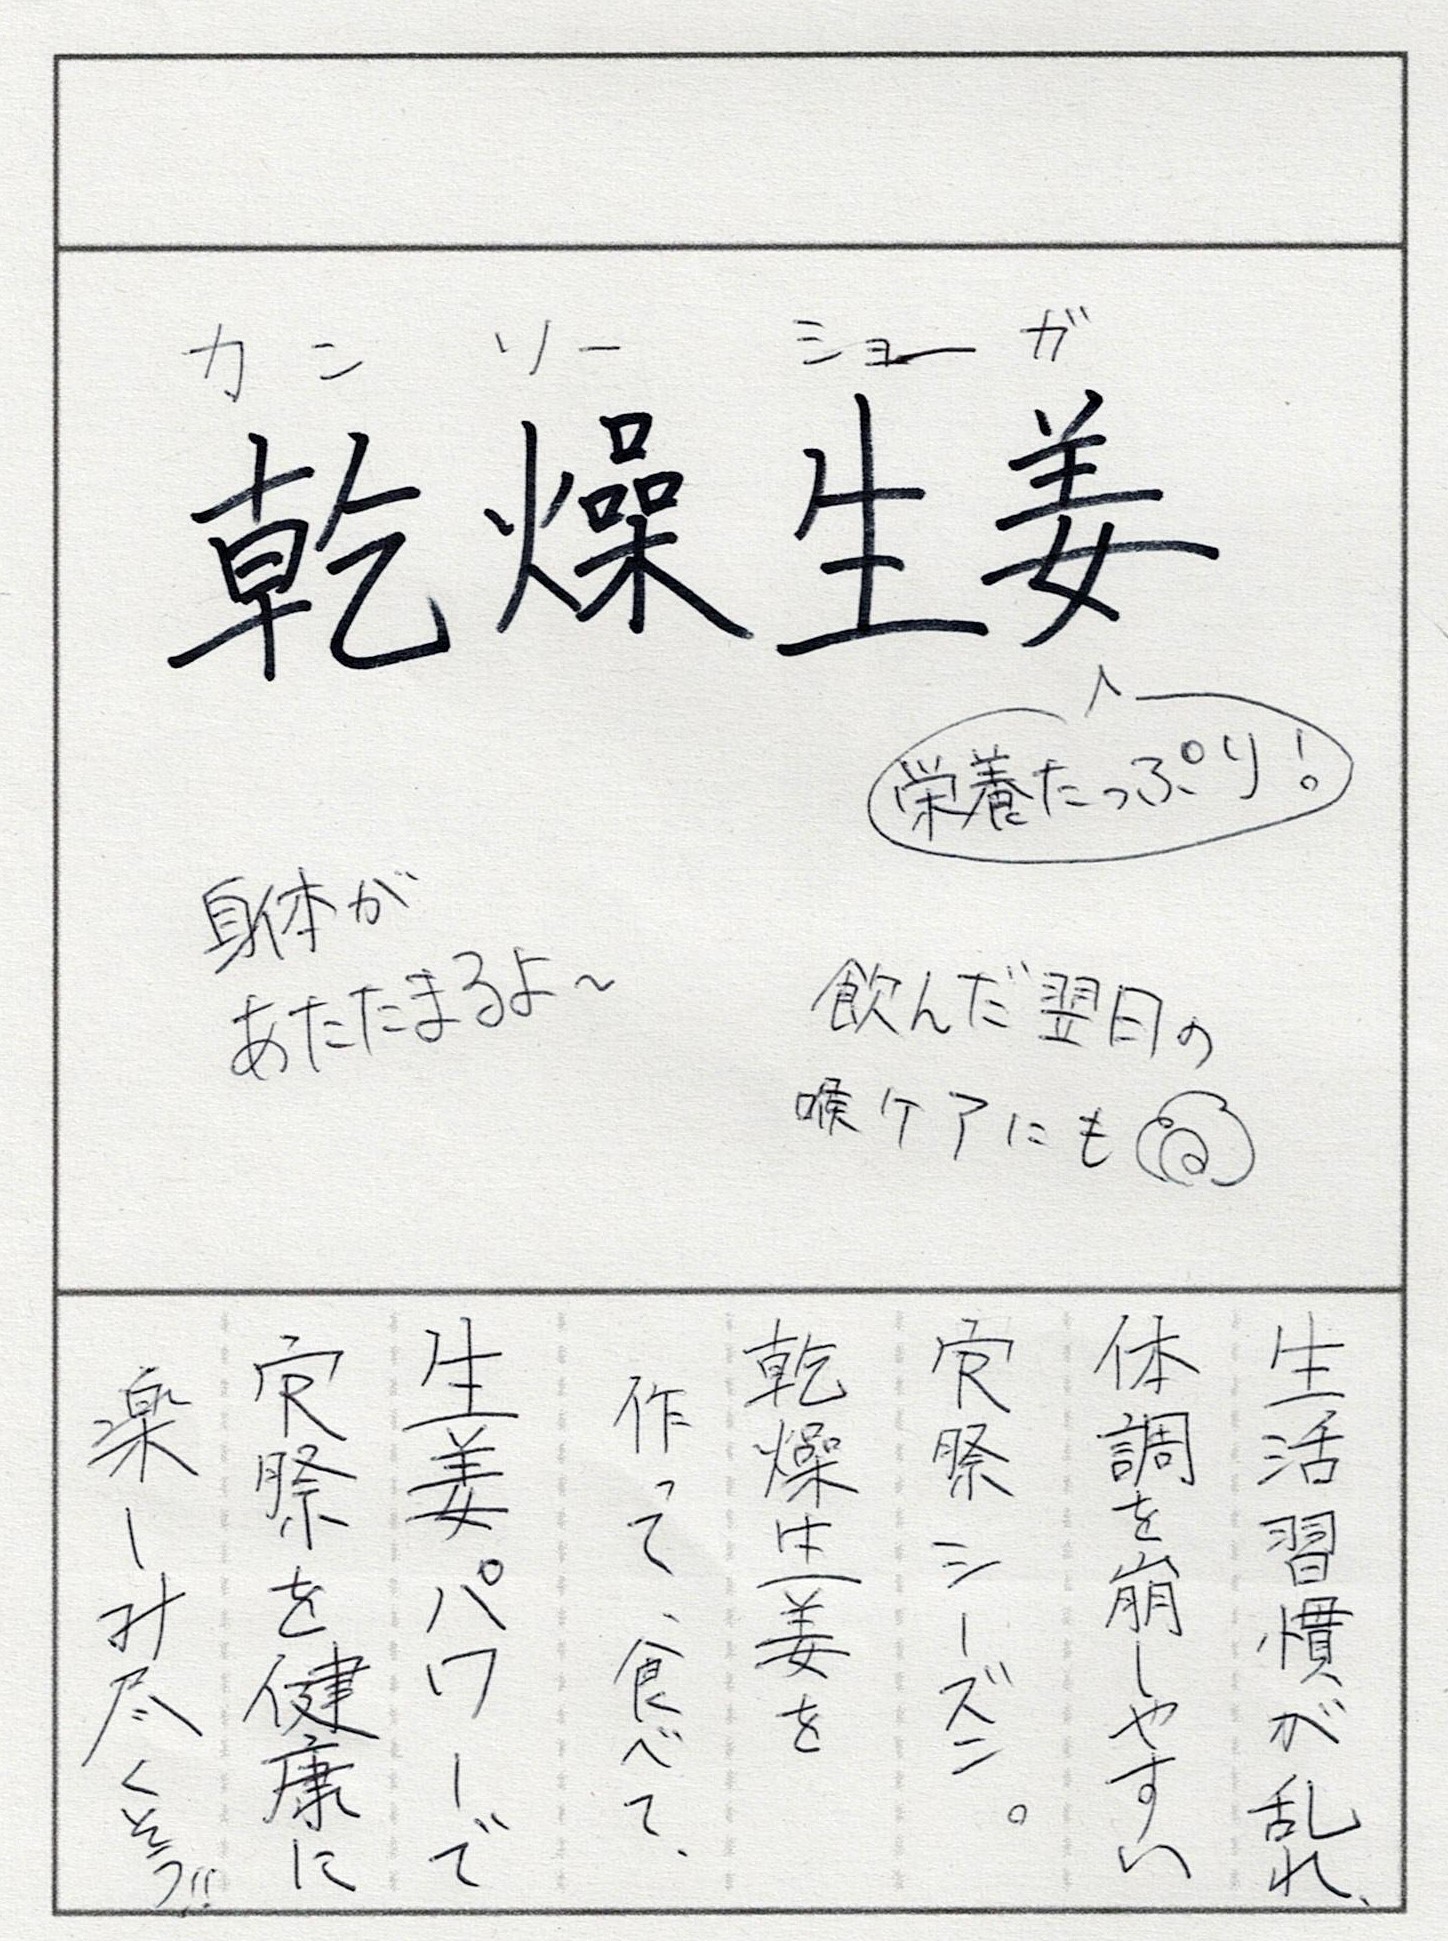 カンソーショーガ
乾燥生姜
栄養たっぷり!
身体が
あたたまるよ~
飲んだ翌日の
喉ケアにも
生活習慣が乱れ、
体調を崩しやすい
定祭シーズン。
乾燥生姜を
作って、食べて、
生姜パワーで
定祭を健康に
楽しみ尽くそう!!